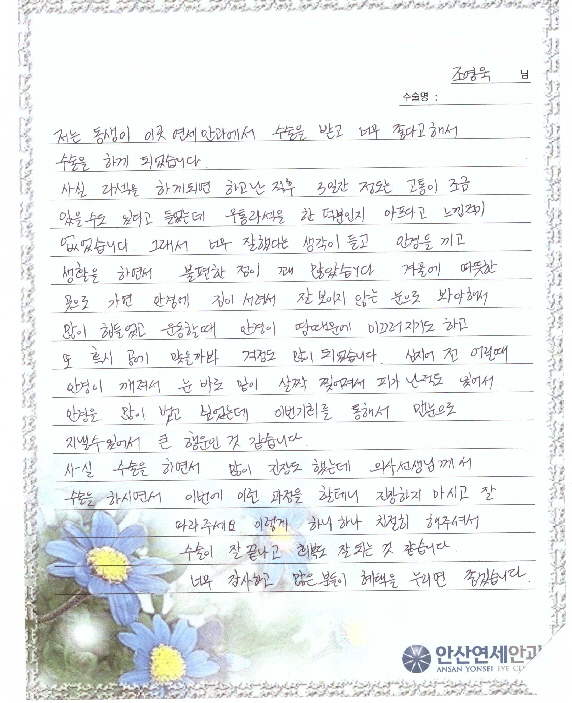 조영욱 님
수술명 :
저는 동생이 이곳 연세안과에서 수술을 받고 너무 좋다고 해서
수술을 하게 되었습니다
사실 라섹을 하게되면 하고난 직후 3일간 정도는 고통이 조금
있을수도 있다고 들었는데 무통라섹을 한 덕분인지 아프다고 느낀적이
없었습니다. 그래서 너무 잘했다는 생각이 들고 안경을 끼고
생활을 하면서 불편한 점이 꽤 많았습니다 겨울에 따뜻한
곳으로 가면 안경에 김이 서려서 잘 보이지 않는 눈으로 봐야해서
많이 힘들었고 운동할때 안경이 땀때문에 미끄러지기도 하고
또 혹시 공에 맞을까봐 걱정도 많이 되었습니다. 심지어 전 어릴때
안경이 깨져서 눈 바로 밑이 살짝 찢어져서 피가 난적도 있어서
안경을 많이 벗고 싶었는데 이번기회를 통해서 맨눈으로
지낼수 있어서 큰 행운인 것 같습니다.
사실 수술을 하면서 많이 긴장도 했는데 의사선생님께서
수술을 하시면서 이번에 이런 과정을 할테니 긴장하지 마시고 잘
따라주세요 이렇게 하나하나 친절히 해주셔서
수술이 잘 끝나고 회복도 잘 되는 것 같습니다.
너무 감사하고 많은 분들이 혜택을 누리면 좋겠습니다.
안산연세안과
ANSAN YONSEI EYE